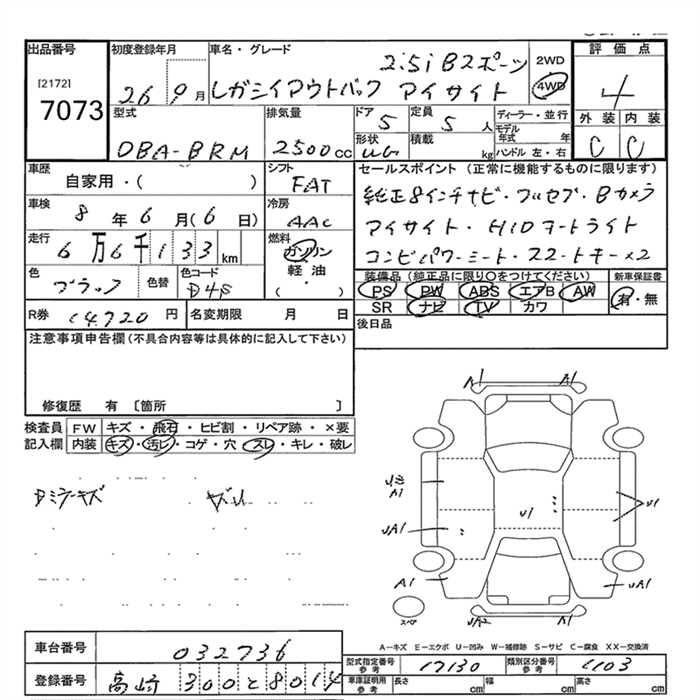 出品番号
[2172]
7073
初度登録年月
26 9月
車名・グレード
2.5i Bスポーツ
レガシイアウトバック アイサイト
2WD
4WD
評価点
4
外装 内装
C C
型式
DBA-BRM
排気量
2500cc
ドア
5
定員
5人
形状
積載
kg
ディーラー・並行
モデル年式 年
ハンドル 左・右
車歴
自家用・( )
シフト
FAT
セールスポイント (正常に機能するものに限ります)
純正8インチナビ・フルセグ・Bカメラ
アイサイト・HIDヘッドライト
コンビパワーシート・スマートキー×2
車検
8年6月(6日)
冷房
AAC
走行
6万6千133km
燃料
ガソリン
軽油
・( )
色
ブラック
色替
色コード
D4S
装備品 (純正品に限り〇をつけてください)
PS PW ABS エアB AW
SR ナビ TV カワ
新車保証書
有・無
R券
14,720円
名変期限 月 日
後日品
注意事項申告欄 (不具合内容等は具体的に記入して下さい)
修復歴 有 〔箇所 〕
検査員 FW キズ・飛石・ヒビ割・リペア跡・×要
記入欄 内装 キズ・汚レ・コゲ・穴・スレ・キレ・破レ
Dミラーキズ
A1 A1
A1
U1
U1
UA1
A1
UA1
UA2 A1
スペア
A-キズ E-エクボ U-凹み W-補修跡 S-サビ C-腐食 XX-交換済
車台番号
032736
登録番号
高崎 300 と 8014
型式指定番号
参考
17130
類別区分番号
参考
1103
車庫証明用
参考
長さ cm 幅 cm 高さ cm